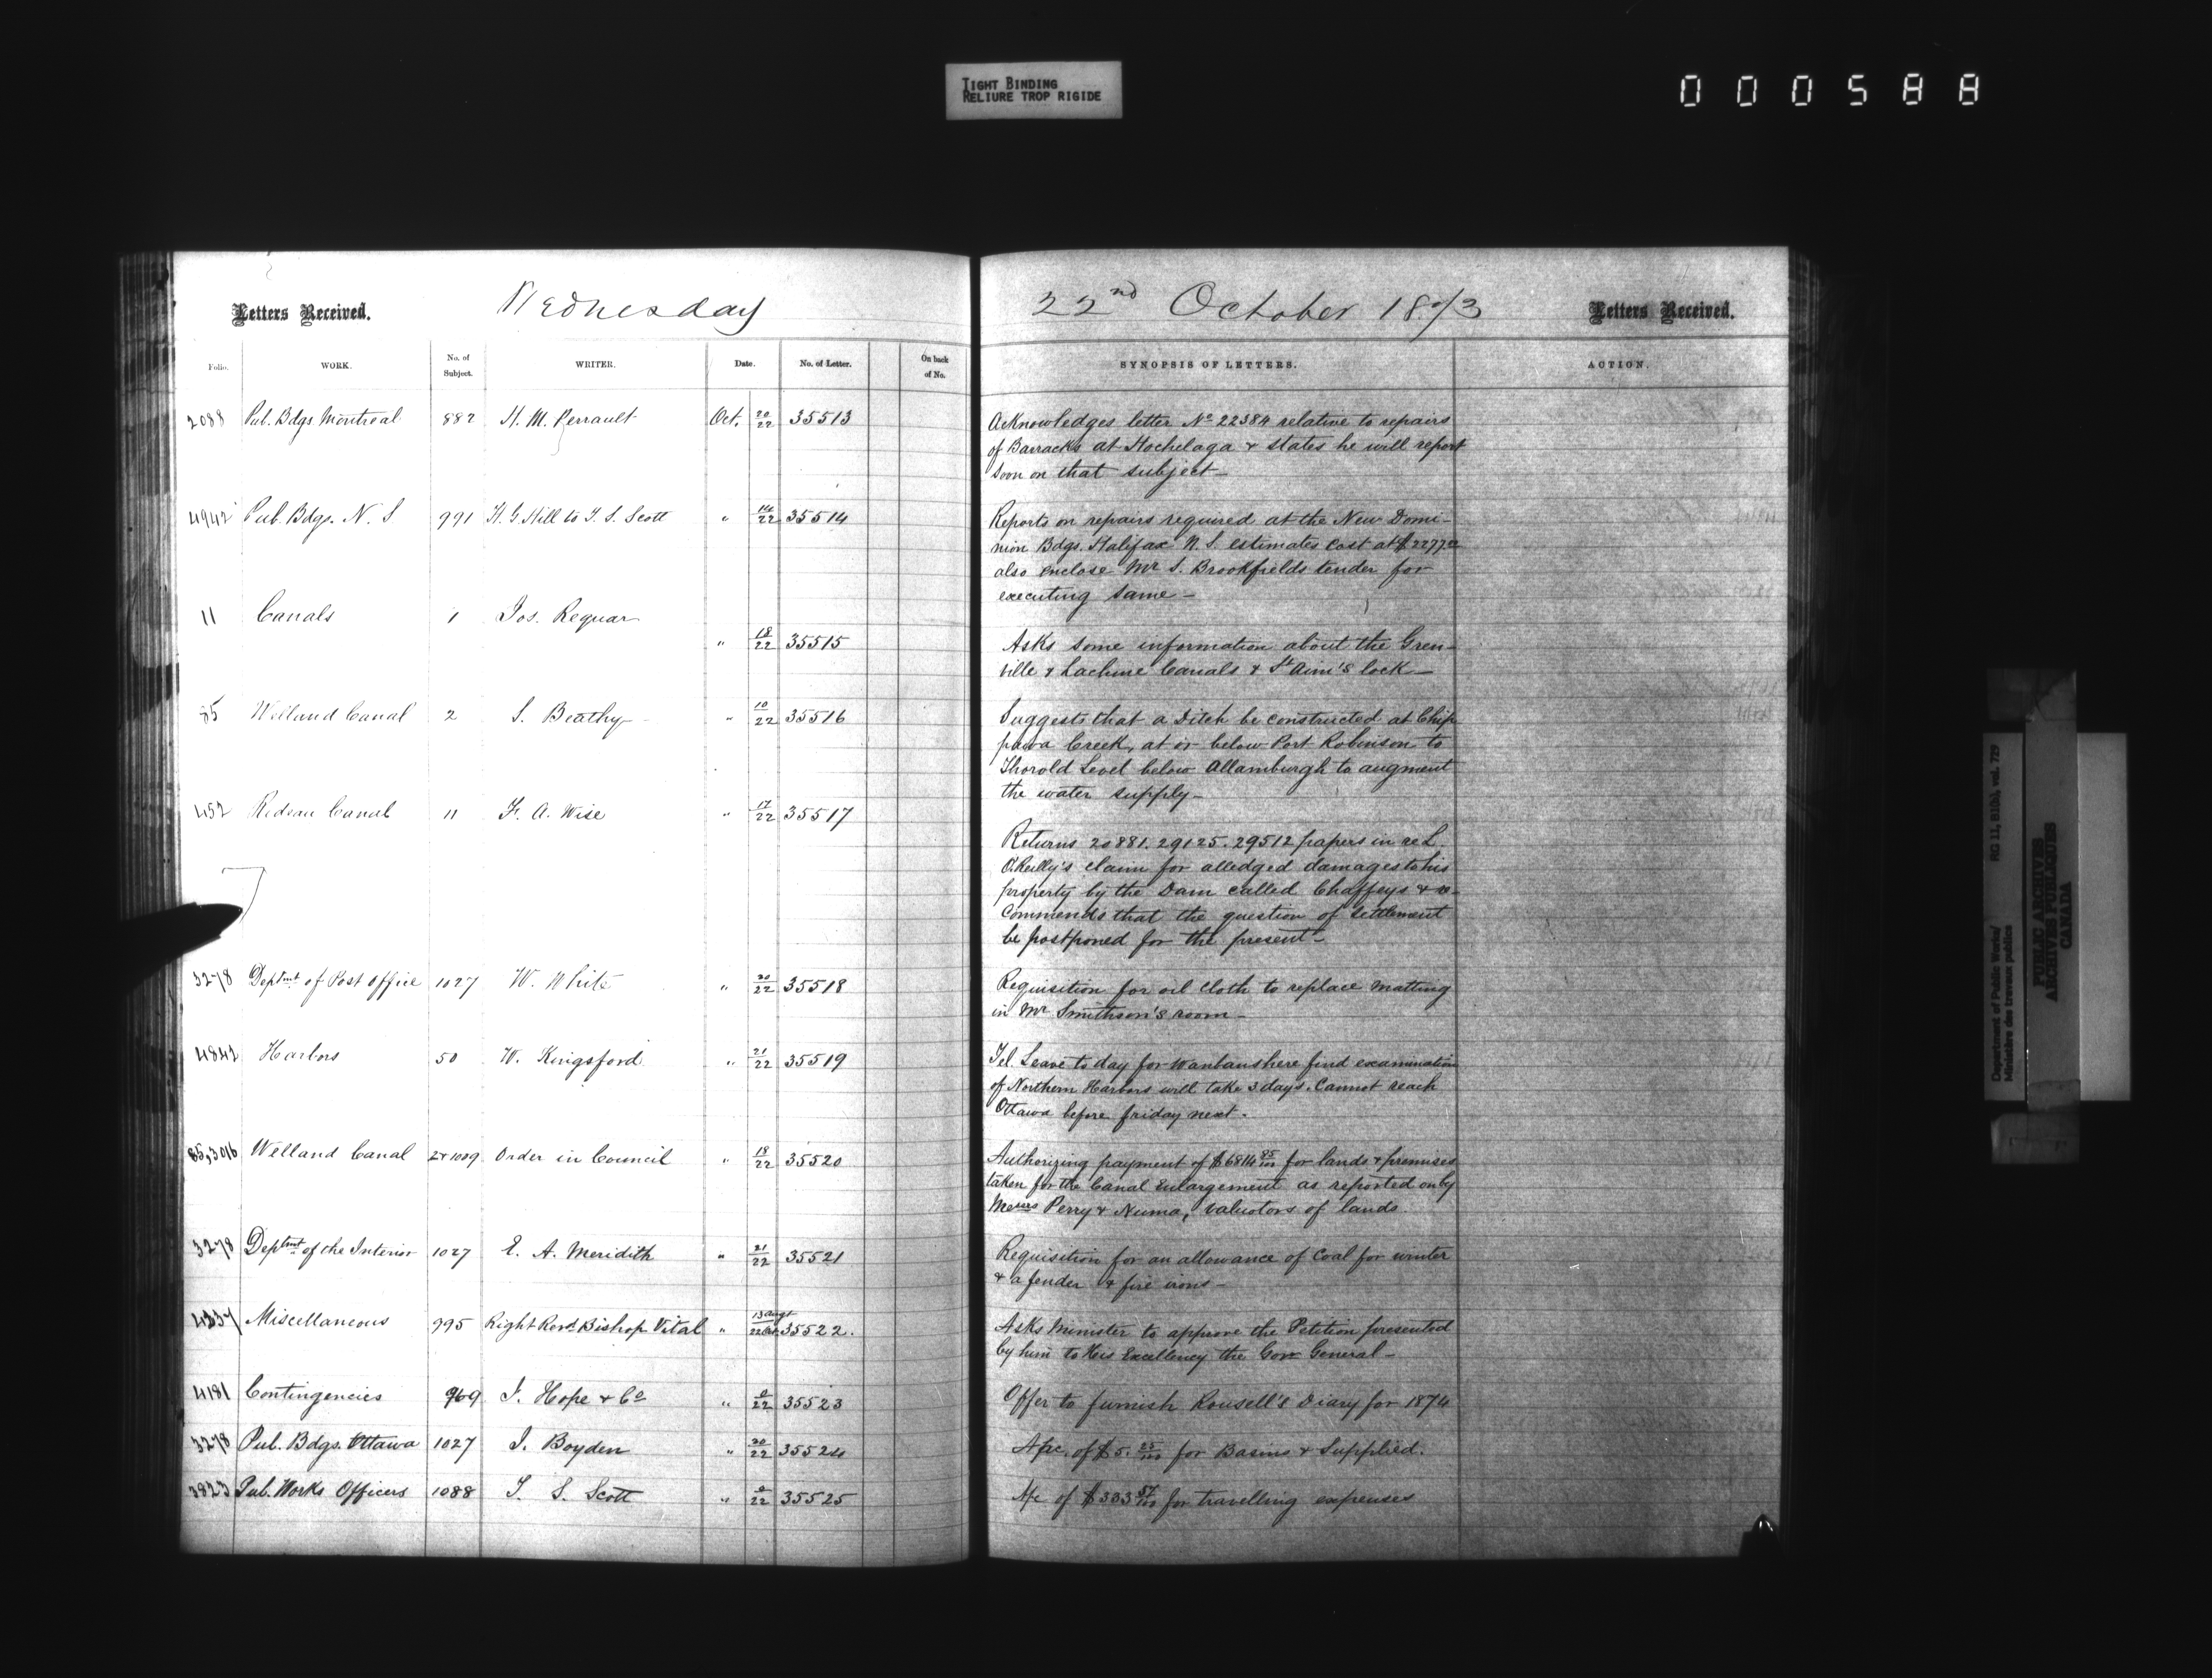 TIGHT BINDING
RELIURE TROP RIGIDE
000588
Letters Received.
Wednesday
22nd October 1873
Letters Received.
Folio. WORK. No. of Subject. WRITER. Date. No. of Letter. On back of No. SYNOPSIS OF LETTERS. ACTION.
2088 Pub. Bdgs. Montreal 882 H. M. Perrault Oct. 20/22 35513
Acknowledges letter No 22384 relative to repairs
of Barracks at Hochelaga & states he will report
soon on that subject—
4942 Pub. Bdgs. N. S. 991 H. G. Hill to T. S. Scott " 14/22 35514
Reports on repairs required at the New Domi-
nion Bdgs. Halifax N. S. estimates cost at $2277
also enclose Mr S. Brookfields tender for
executing same—
11 Canals 1 Jos. Requar " 18/22 35515
Asks some information about the Gren-
ville & Lachine Canals & St Ann's lock—
85 Welland Canal 2 S. Beatty " 10/22 35516
Suggests that a Ditch be constructed at Chip
pawa Creek, at or below Port Robinson to
Thorold Level below Allanburgh to augment
the water supply—
452 Rideau Canal 11 F. A. Wise " 17/22 35517
Returns 20881. 29125. 29512 papers in re L.
O'Reilly's claim for alledged damages to his
property by the Dam called Chaffeys & re-
commends that the question of settlement
be postponed for the present—
3278 Deptmt of Post Office 1027 W. White " 20/22 35518
Requisition for oil cloth to replace matting
in Mr Smithson's room—
4842 Harbors 50 W. Kingsford " 21/22 35519
Tel. Leave to day for find examination
of Northern Harbors will take 3 days. Cannot reach
Ottawa before friday next.
85,3016 Welland Canal 2&1009 Order in Council " 18/22 35520
Authorizing payment of $6814 85/100 for lands & premises
taken for the Canal Enlargement as reported on by
Messrs Perry & Numa, valuators of lands.
3278 Deptmt of the Interior 1027 E. A. Meridith " 21/22 35521
Requisition for an allowance of Coal for winter
& a fender & fire irons—
4237 Miscellaneous 995 Right Revd. Bishop Vital " 13 Augt/22 Oct 35522.
Asks Minister to approve the Petition presented
by him to His Excellency the Gov General—
4181 Contingencies 969 J. Hope & Co " 0/22 35523
Offer to furnish Rousell's Diary for 1874
3278 Pub. Bdgs. Ottawa 1027 J. Boyden " 20/22 35524
Apc. of $5. 25/100 for Basins & Supplied.
3823 Pub. Works Officers 1088 T. S. Scott " 0/22 35525
A/c of $333 57/100 for travelling expenses
Department of Public Works/
Ministère des travaux publics
RG 11, B1(b), vol. 729
PUBLIC ARCHIVES
ARCHIVES PUBLIQUES
CANADA